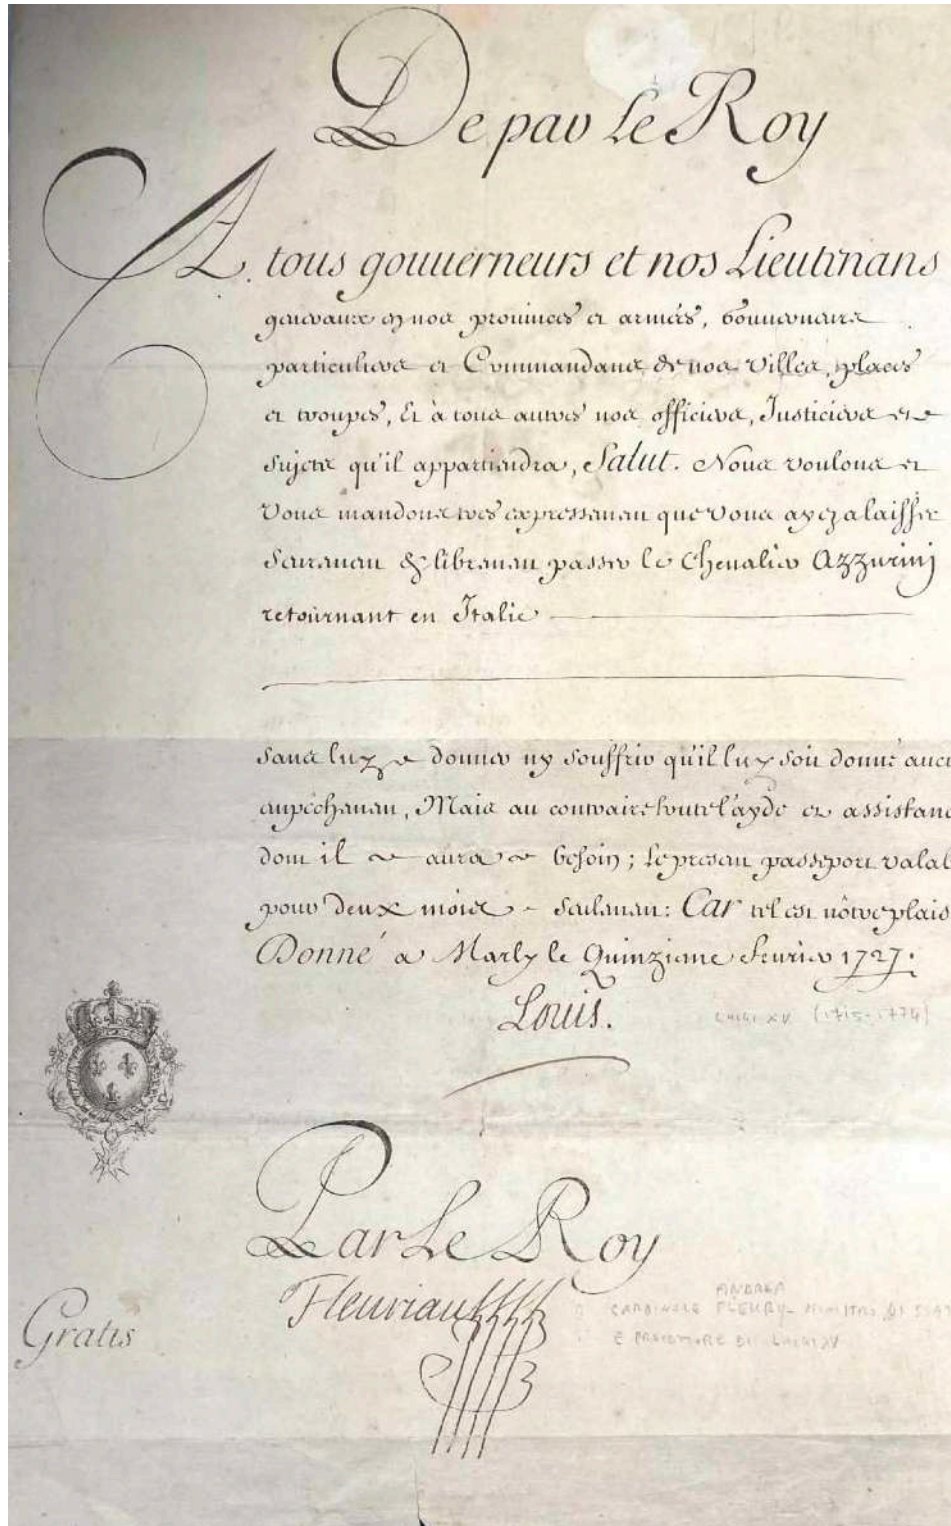 De par le Roy
A tous gouuerneurs et nos Lieutenans
generaux en nos prouinces et armées, Gouuerneurs
particuliers et Commandans de nos Villes, places
et troupes, Et à tous autres nos officiers, Justiciers et
Sujets qu'il appartiendra, Salut. Nous voulons et
Vous mandons tres expressement que vous ayez a laisser
seurement & librement passer le Chevalier Azzurinj
retournant en Italie
sans luy donner ny souffrir qu'il luy soit donné aucu
empéchement, Mais au contraire toute l'ayde et assistanc
dont il aura besoin; Le present passeport valab
pour deux mois seulement: Car tel est nôtre plais
Donné a Marly le Quinzieme feurier 1727.
Louis.
LUIGI XV (1715-1774)
Par Le Roy
Fleuriau
ANDREA
CARDINALE FLEURY - MINISTRO DI STAT
E PROTETTORE DI LUIGI XV
Gratis